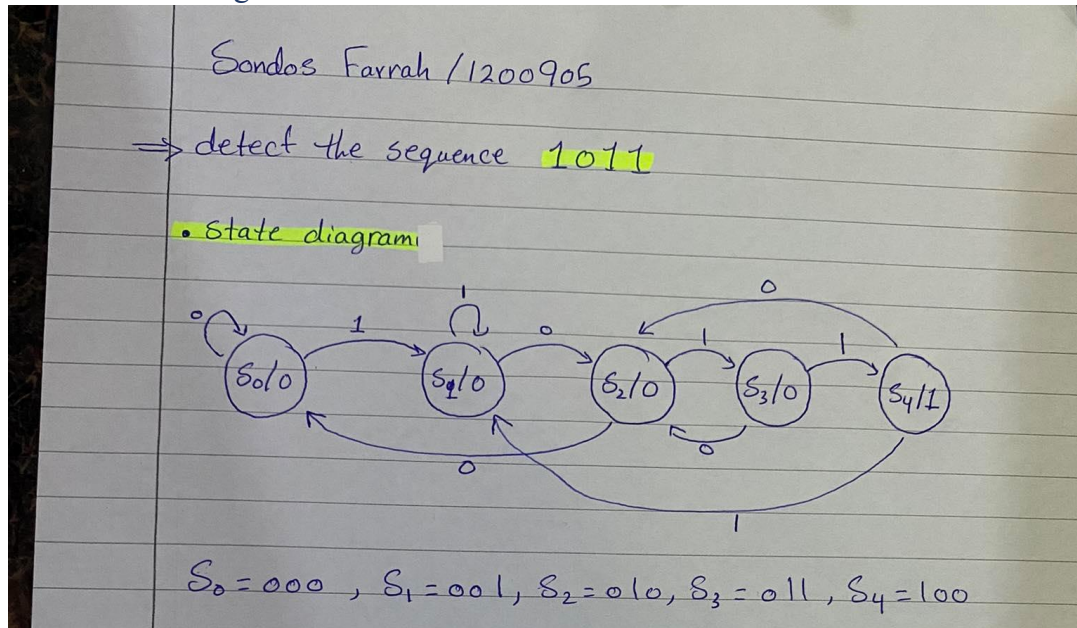 Sondos Farrah / 1200905
⇒ detect the sequence 1011
• State diagram
0
1
1
0
1
1
0
S0/0
S1/0
S2/0
S3/0
S4/1
0
0
1
S0 = 000 , S1 = 001, S2 = 010, S3 = 011, S4 = 100